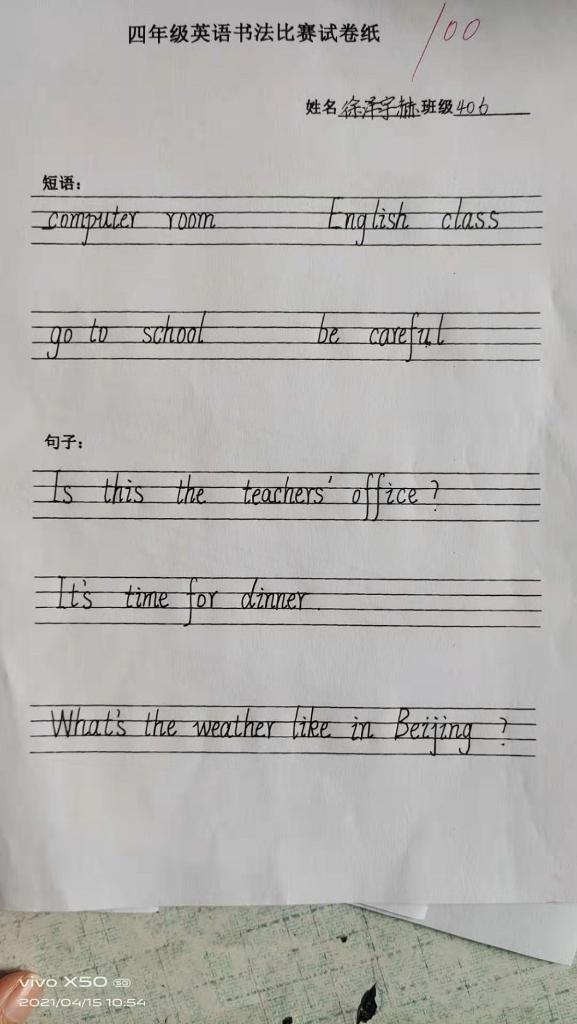 四年级英语书法比赛试卷纸 100
姓名 徐泽宇赫 班级 406
短语：
computer room English class
go to school be careful
句子：
Is this the teachers' office?
It's time for dinner
What's the weather like in Beijing ?
vivo X50 5G
2021/04/15 10:54